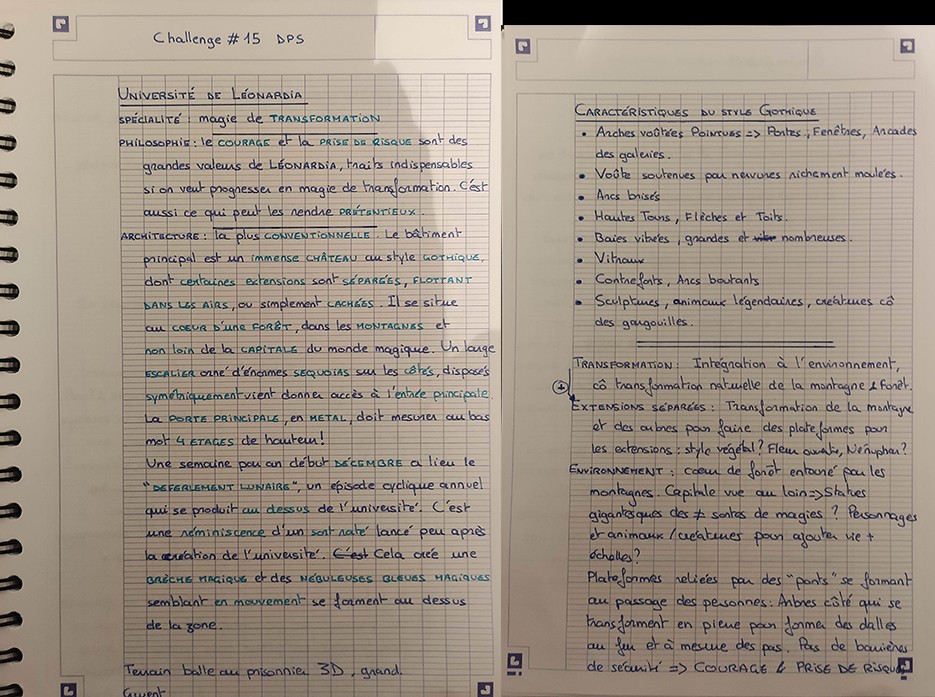 Challenge #15 DPS
UNIVERSITÉ DE LÉONARDIA
SPÉCIALITÉ : magie de TRANSFORMATION
PHILOSOPHIE : le COURAGE et la PRISE DE RISQUE sont des
grandes valeurs de LÉONARDIA, traits indispensables
si on veut progresser en magie de transformation. C'est
aussi ce qui peut les rendre PRÉTENTIEUX.
ARCHITECTURE : la plus CONVENTIONNELLE. Le bâtiment
principal est un immense CHÂTEAU au style GOTHIQUE,
dont certaines extensions sont SÉPARÉES, FLOTTANT
DANS LES AIRS, ou simplement CACHÉES. Il se situe
au COEUR D'UNE FORÊT, dans les MONTAGNES et
non loin de la CAPITALE du monde magique. Un large
ESCALIER orné d'énormes SEQUOIAS sur les côtés, disposés
symétriquement vient donner accès à l'entrée principale.
La PORTE PRINCIPALE, en METAL, doit mesurer au bas
mot 4 ETAGES de hauteur !
Une semaine par an début DÉCEMBRE a lieu le
"DEFERLEMENT LUNAIRE", un épisode cyclique annuel
qui se produit au dessus de l'université. C'est
une réminiscence d'un sort raté lancé peu après
la création de l'université. C'est Cela crée une
BRÈCHE MAGIQUE et des NÉBULEUSES BLEUES MAGIQUES
semblant en mouvement se forment au dessus
de la zone.
Terrain balle au prisonnier 3D, grand.
CARACTÉRISTIQUES DU STYLE GOTHIQUE
• Arches voûtées Pointues => Portes, Fenêtres, Arcades
des galeries.
• Voûte soutenues par nervures richement moulées.
• Arcs brisés
• Hautes Tours, Flèches et Toits.
• Baies vitrées, grandes et nombreuses.
• Vitraux
• Contreforts, Arcs boutants
• Sculptures, animaux légendaires, créatures cô
des gargouilles.
TRANSFORMATION : Intégration à l'environnement,
cô transformation naturelle de la montagne & forêt.
+
EXTENSIONS SÉPARÉES : Transformation de la montagne
et des arbres pour faire des plateformes pour
les extensions : style végétal ? Fleur ouverte, Nénuphar ?
ENVIRONNEMENT : cœur de forêt entouré par les
montagnes. Capitale vue au loin => Statues
gigantesques des ≠ sortes de magies ? Personnages
et animaux / créatures pour ajouter vie +
échelles ?
Plateformes reliées par des "ponts" se formant
au passage des personnes : Arbres côté qui se
transforment en pierre pour former des dalles
au fur et à mesure des pas. Pas de barrières
de sécurité => COURAGE & PRISE DE RISQUE